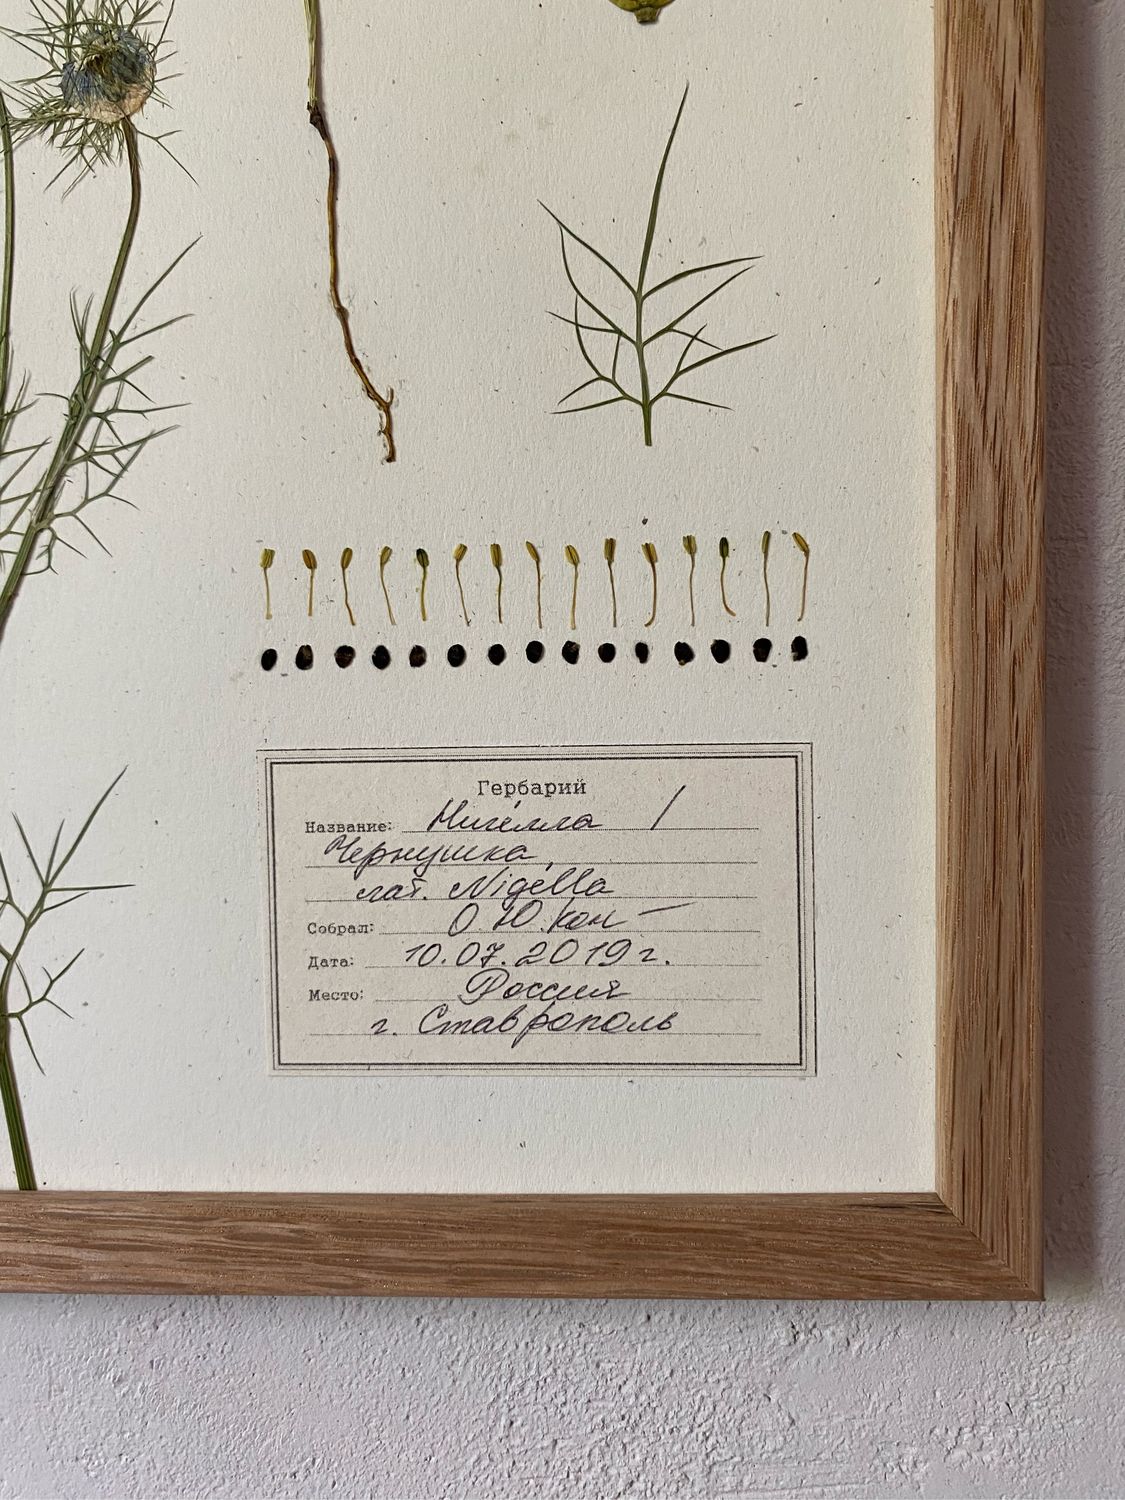 Гербарий
Название: Нигелла /
Чернушка,
лат. Nigella
Собрал: О. Ю. Кон —
Дата: 10.07.2019 г.
Место: Россия
г. Ставрополь